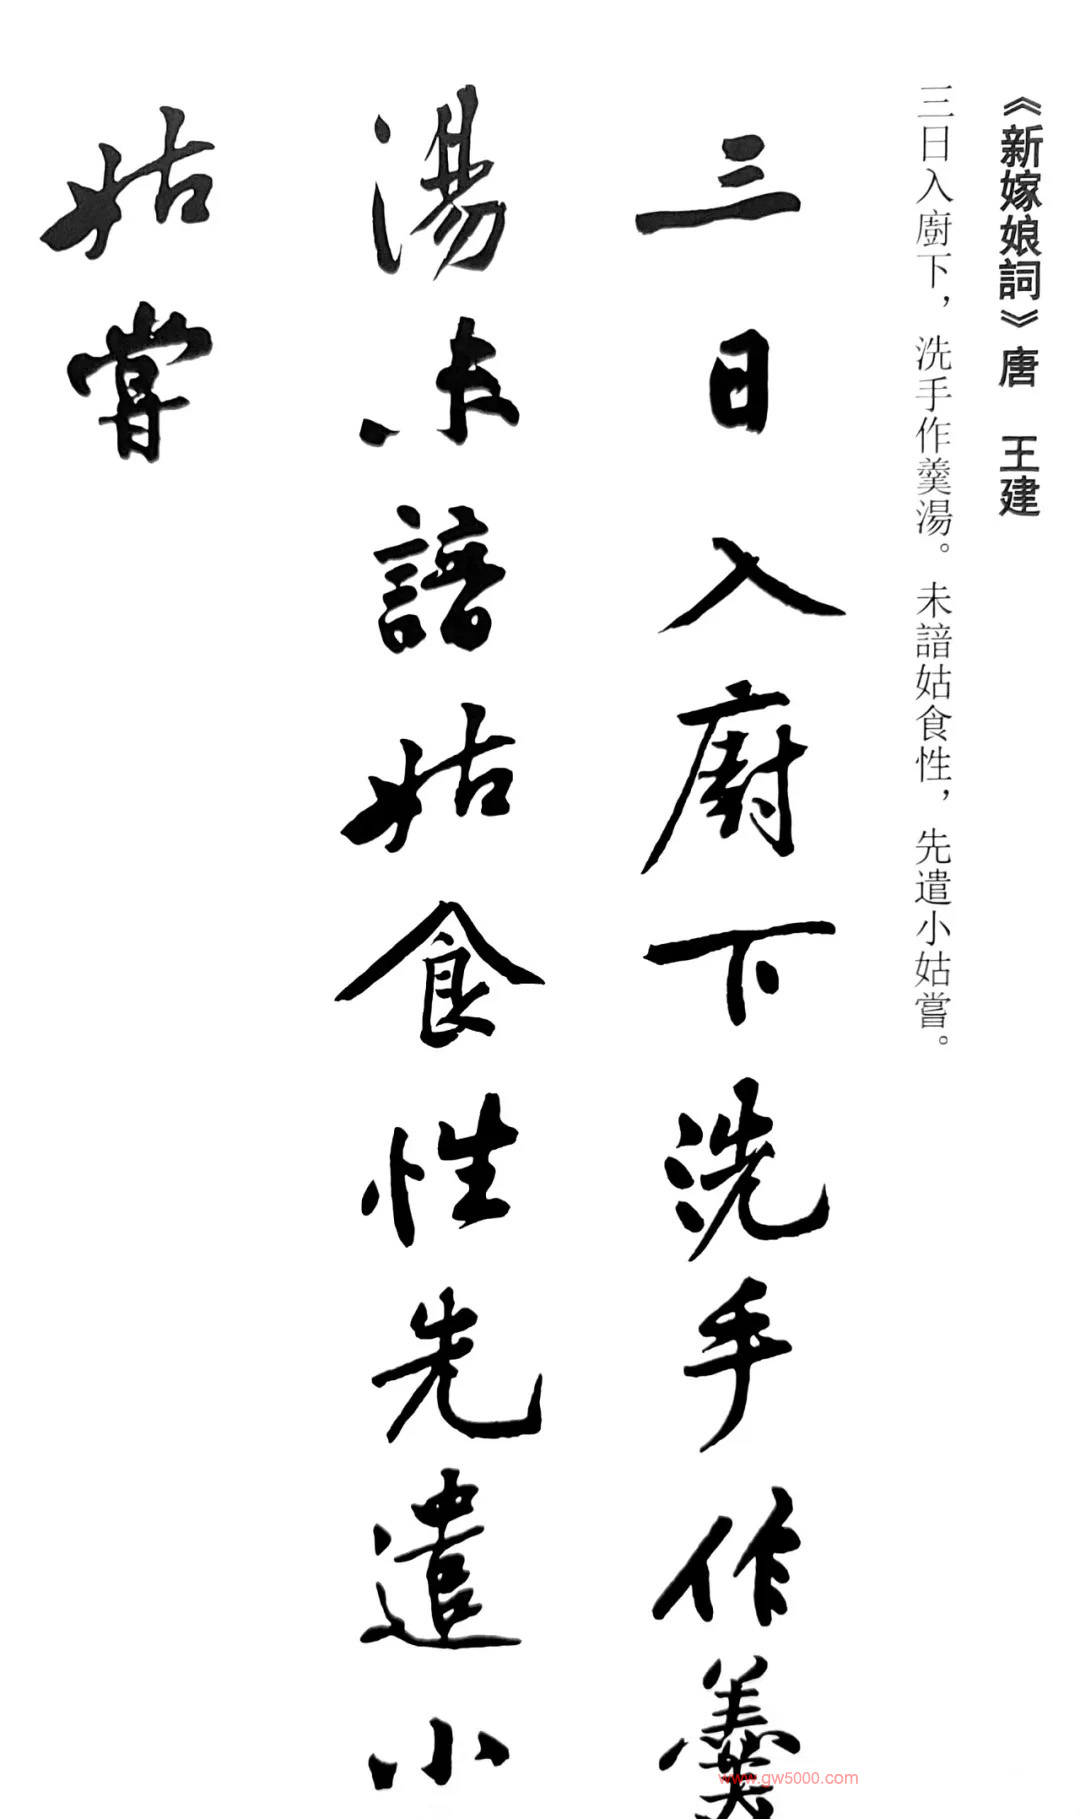 《新嫁娘詞》唐　王建
三日入廚下，洗手作羹湯。未諳姑食性，先遣小姑嘗。
三日入廚下洗手作羹
湯未諳姑食性先遣小
姑嘗
www.gw5000.com